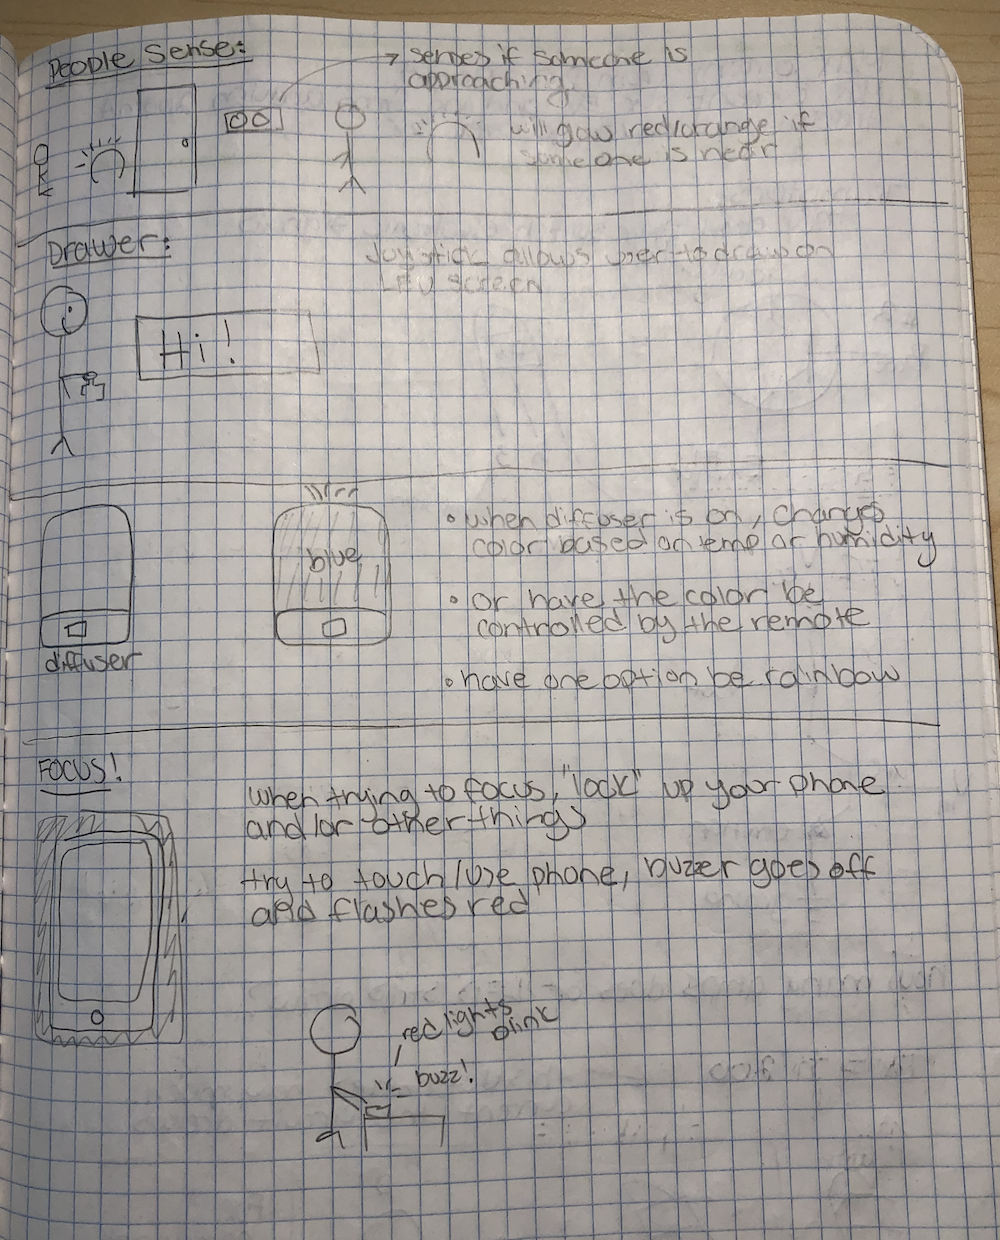 People Sense:
→ senses if someone is
approaching
will glow red/orange if
someone is near
Drawer:
Joystick allows user to draw on
LED screen
Hi!
blue
diffuser
• when diffuser is on, changes
color based on temp or humidity
• or have the color be
controlled by the remote
• have one option be rainbow
FOCUS!
when trying to focus, "lock" up your phone
and/or other things
try to touch/use phone, buzzer goes off
and flashes red
red lights
blink
buzz!